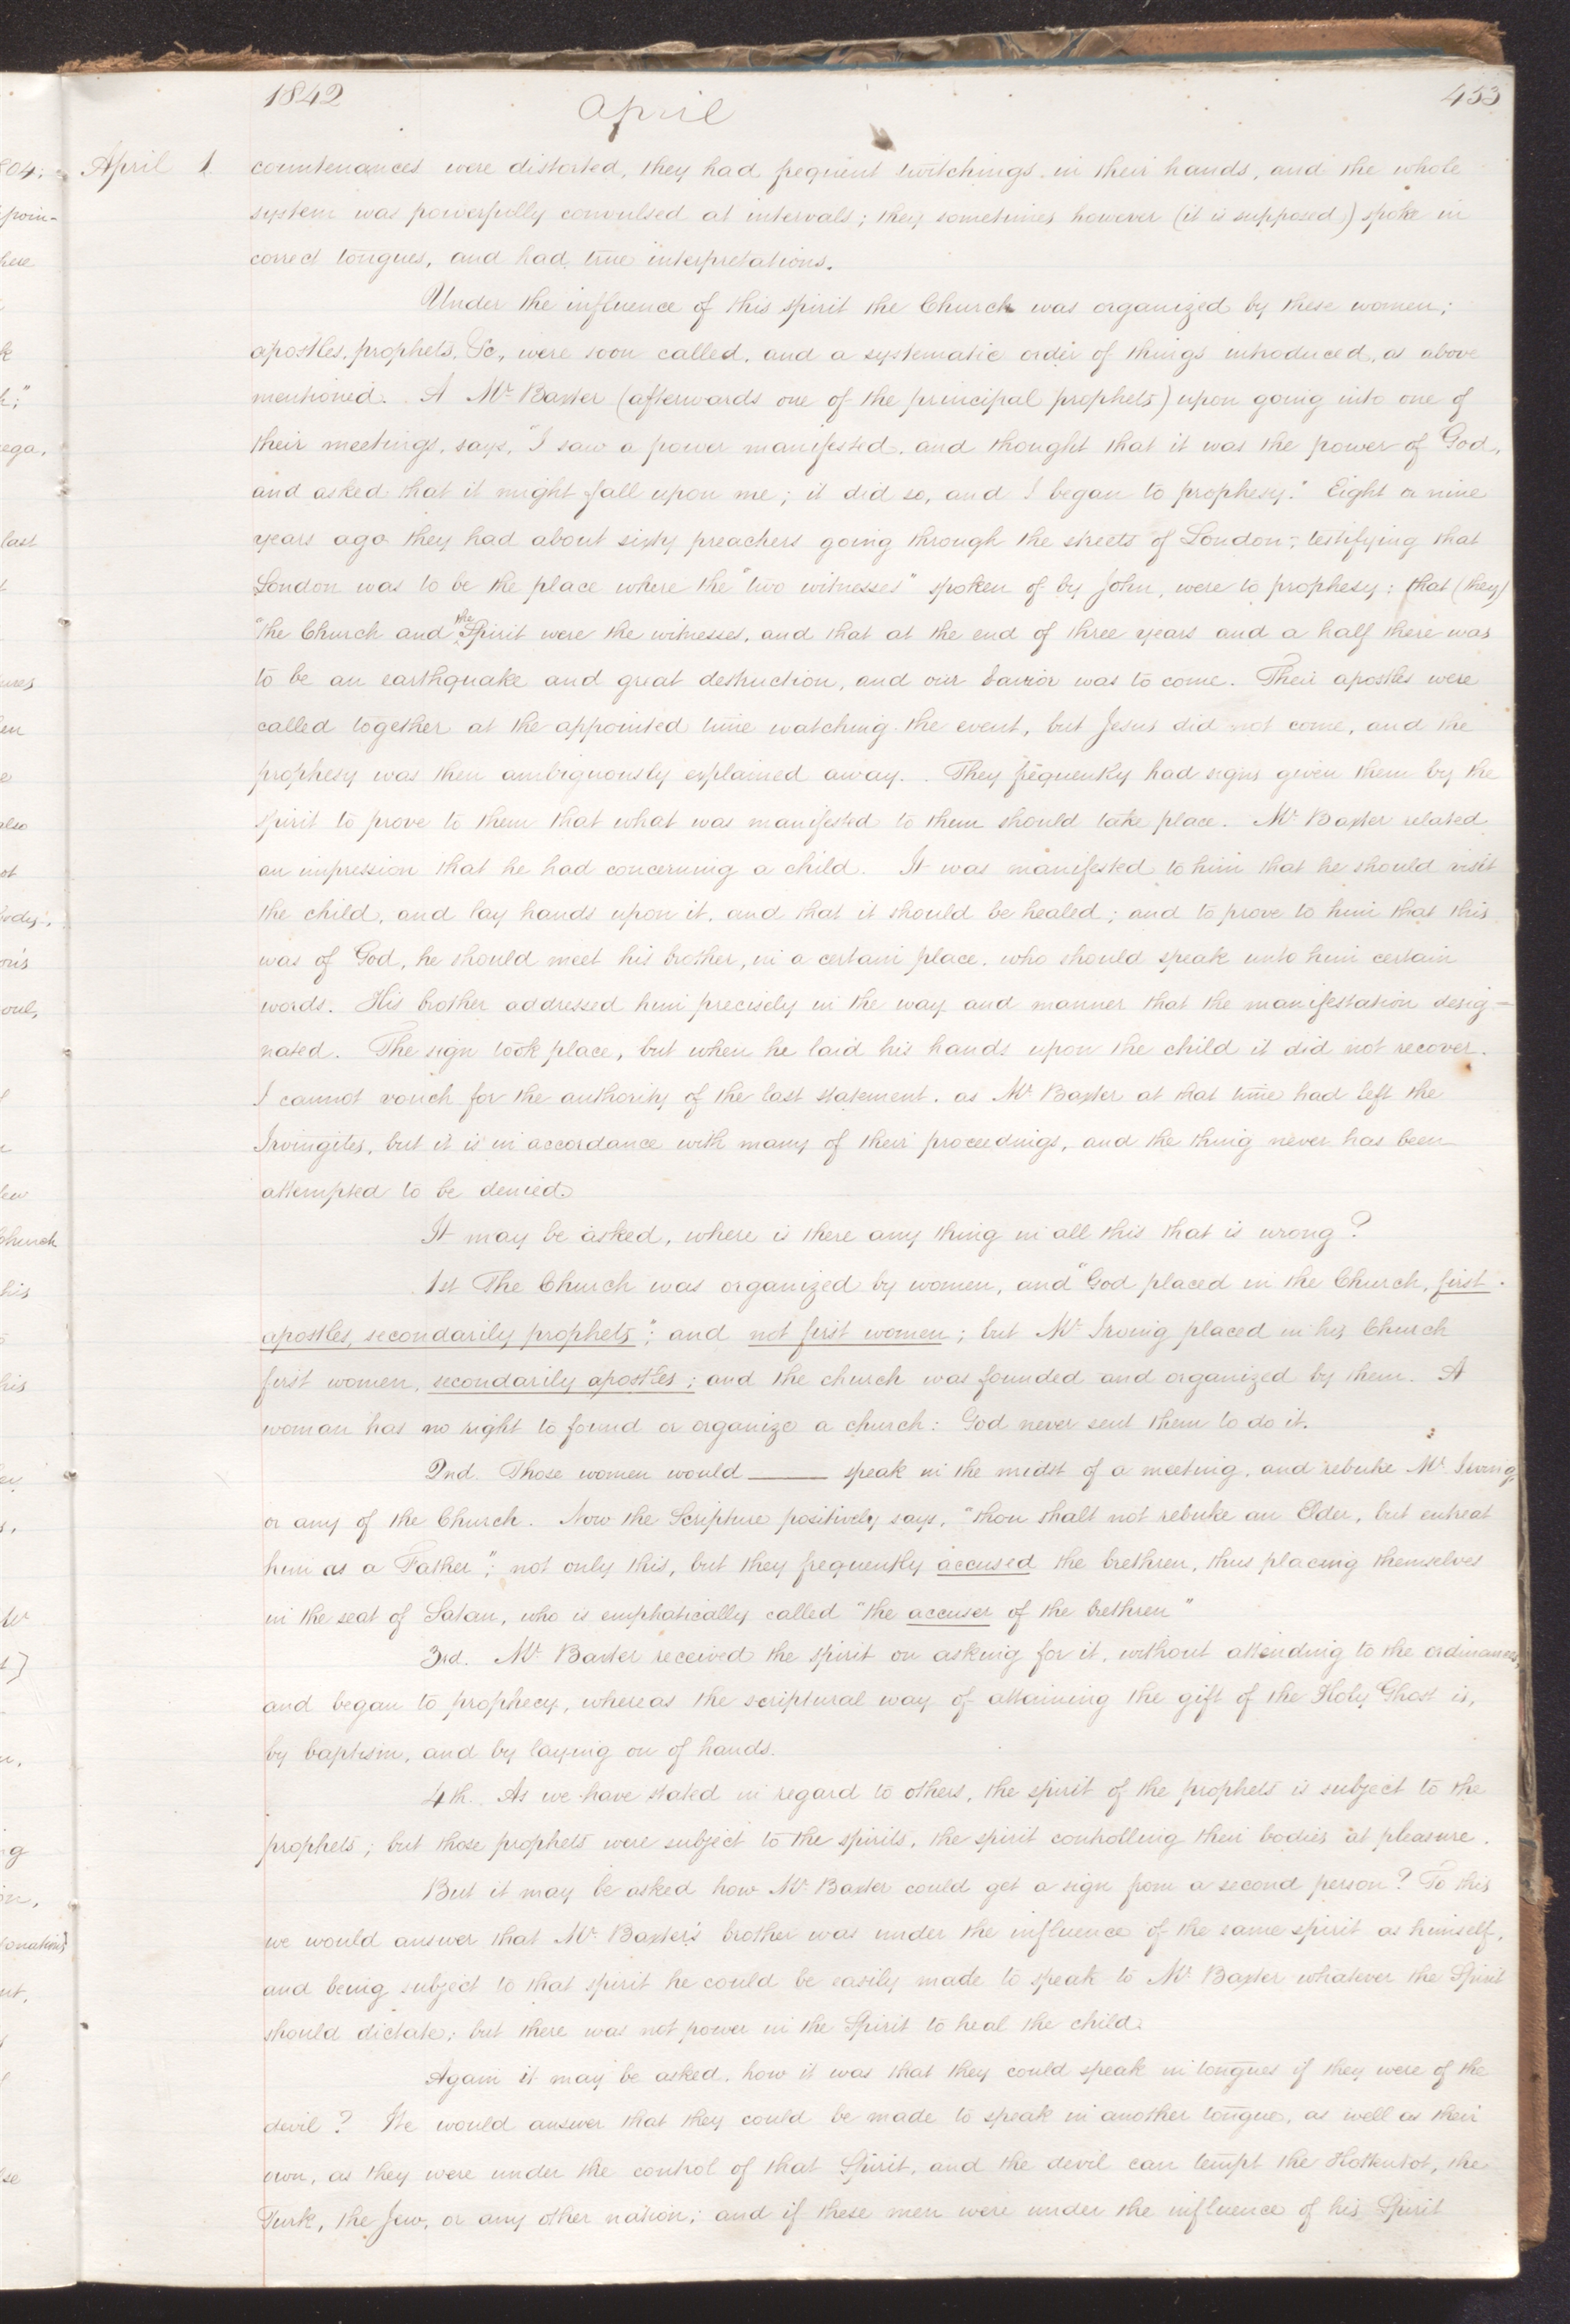 1842 April 453
April 1. countenances were distorted, they had frequent twitchings in their hands, and the whole
system was powerfully convulsed at intervals; they sometimes however (it is supposed) spoke in
correct tongues, and had true interpretations.
Under the influence of this spirit the Church was organized by these women;
apostles, prophets, &c, were soon called, and a systematic order of things introduced, as above
mentioned. A Mr Baxter (afterwards one of the principal prophets) upon going into one of
their meetings, says, "I saw a power manifested, and thought that it was the power of God,
and asked that it might fall upon me; it did so, and I began to prophesy." Eight or nine
years ago they had about sixty preachers going through the streets of London; testifying that
London was to be the place where the "two witnesses" spoken of by John, were to prophesy: that (they)
"the Church and the Spirit were the witnesses, and that at the end of three years and a half there was
to be an earthquake and great destruction, and our Savior was to come. Their apostles were
called together at the appointed time watching the event, but Jesus did not come, and the
prophesy was then ambiguously explained away. They frequently had signs given them by the
spirit to prove to them that what was manifested to them should take place. Mr Baxter related
an impression that he had concerning a child. It was manifested to him that he should visit
the child, and lay hands upon it, and that it should be healed; and to prove to him that this
was of God, he should meet his brother, in a certain place, who should speak unto him certain
words. His brother addressed him precisely in the way and manner that the manifestation desig-
nated. The sign took place, but when he laid his hands upon the child it did not recover.
I cannot vouch for the authority of the last statement, as Mr Baxter at that time had left the
Irvingites, but it is in accordance with many of their proceedings, and the thing never has been
attempted to be denied.
It may be asked, where is there any thing in all this that is wrong?
1st The Church was organized by women, and "God placed in the Church, first
apostles, secondarily prophets"; and not first women; but Mr Irving placed in his Church
first women, secondarily apostles; and the church was founded and organized by them. A
woman has no right to found or organize a church: God never sent them to do it.
2nd. Those women would ——— speak in the midst of a meeting, and rebuke Mr Irving,
or any of the Church. Now the Scripture positively says, "thou shalt not rebuke an Elder, but entreat
him as a Father"; not only this, but they frequently accused the brethren, thus placing themselves
in the seat of Satan, who is emphatically called "the accuser of the brethren"
3rd. Mr Baxter received the spirit on asking for it, without attending to the ordinances,
and began to prophecy, whereas the scriptural way of attaining the gift of the Holy Ghost is,
by baptism, and by laying on of hands.
4th. As we have stated in regard to others, the spirit of the prophets is subject to the
prophets; but those prophets were subject to the spirits, the spirit controlling their bodies at pleasure.
But it may be asked how Mr Baxter could get a sign from a second person? To this
we would answer that Mr Baxter's brother was under the influence of the same spirit as himself,
and being subject to that spirit he could be easily made to speak to Mr Baxter whatever the Spirit
should dictate; but there was not power in the Spirit to heal the child.
Again it may be asked, how it was that they could speak in tongues if they were of the
devil? We would answer that they could be made to speak in another tongue, as well as their
own, as they were under the control of that Spirit, and the devil can tempt the Hottentot, the
Turk, the Jew, or any other nation; and if these men were under the influence of his Spirit